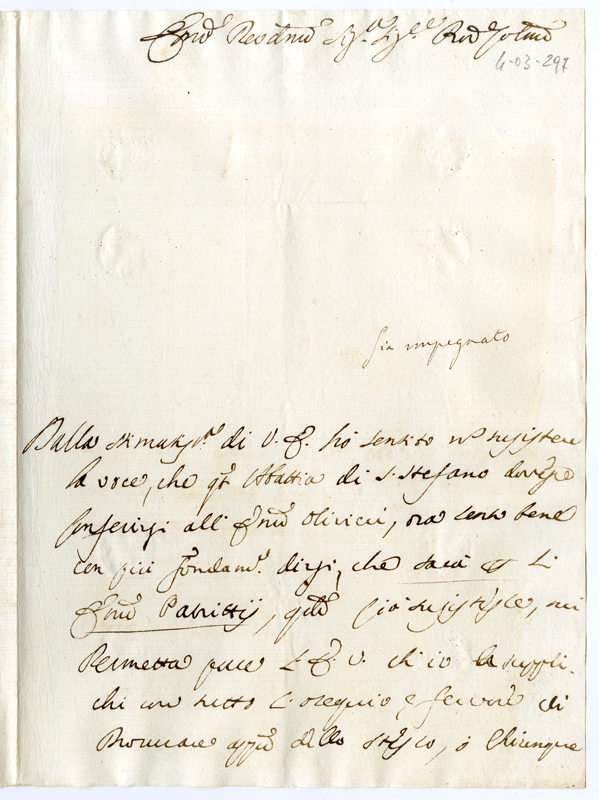 Em.o Rev.mo Sig.r Sig.r P.ron Col.mo
4-03-297
Già impegnato
Dalla stimatiss.a di V. E. hò sentito nō sussistere
la voce, che q.ta Abbatia di S. Stefano dovesse
conferirsi all' Em.o Olivieri, ora sento bene
con più fondam.o dirsi, che sarà Li
Em.o Patrittij, q.do ciò sussistesse, mi
Permetta pure L' E. V. ch'io la suppli-
chi con tutto L'ossequio e fervore di
Procurare app.o dello stesso, ò Chiunque